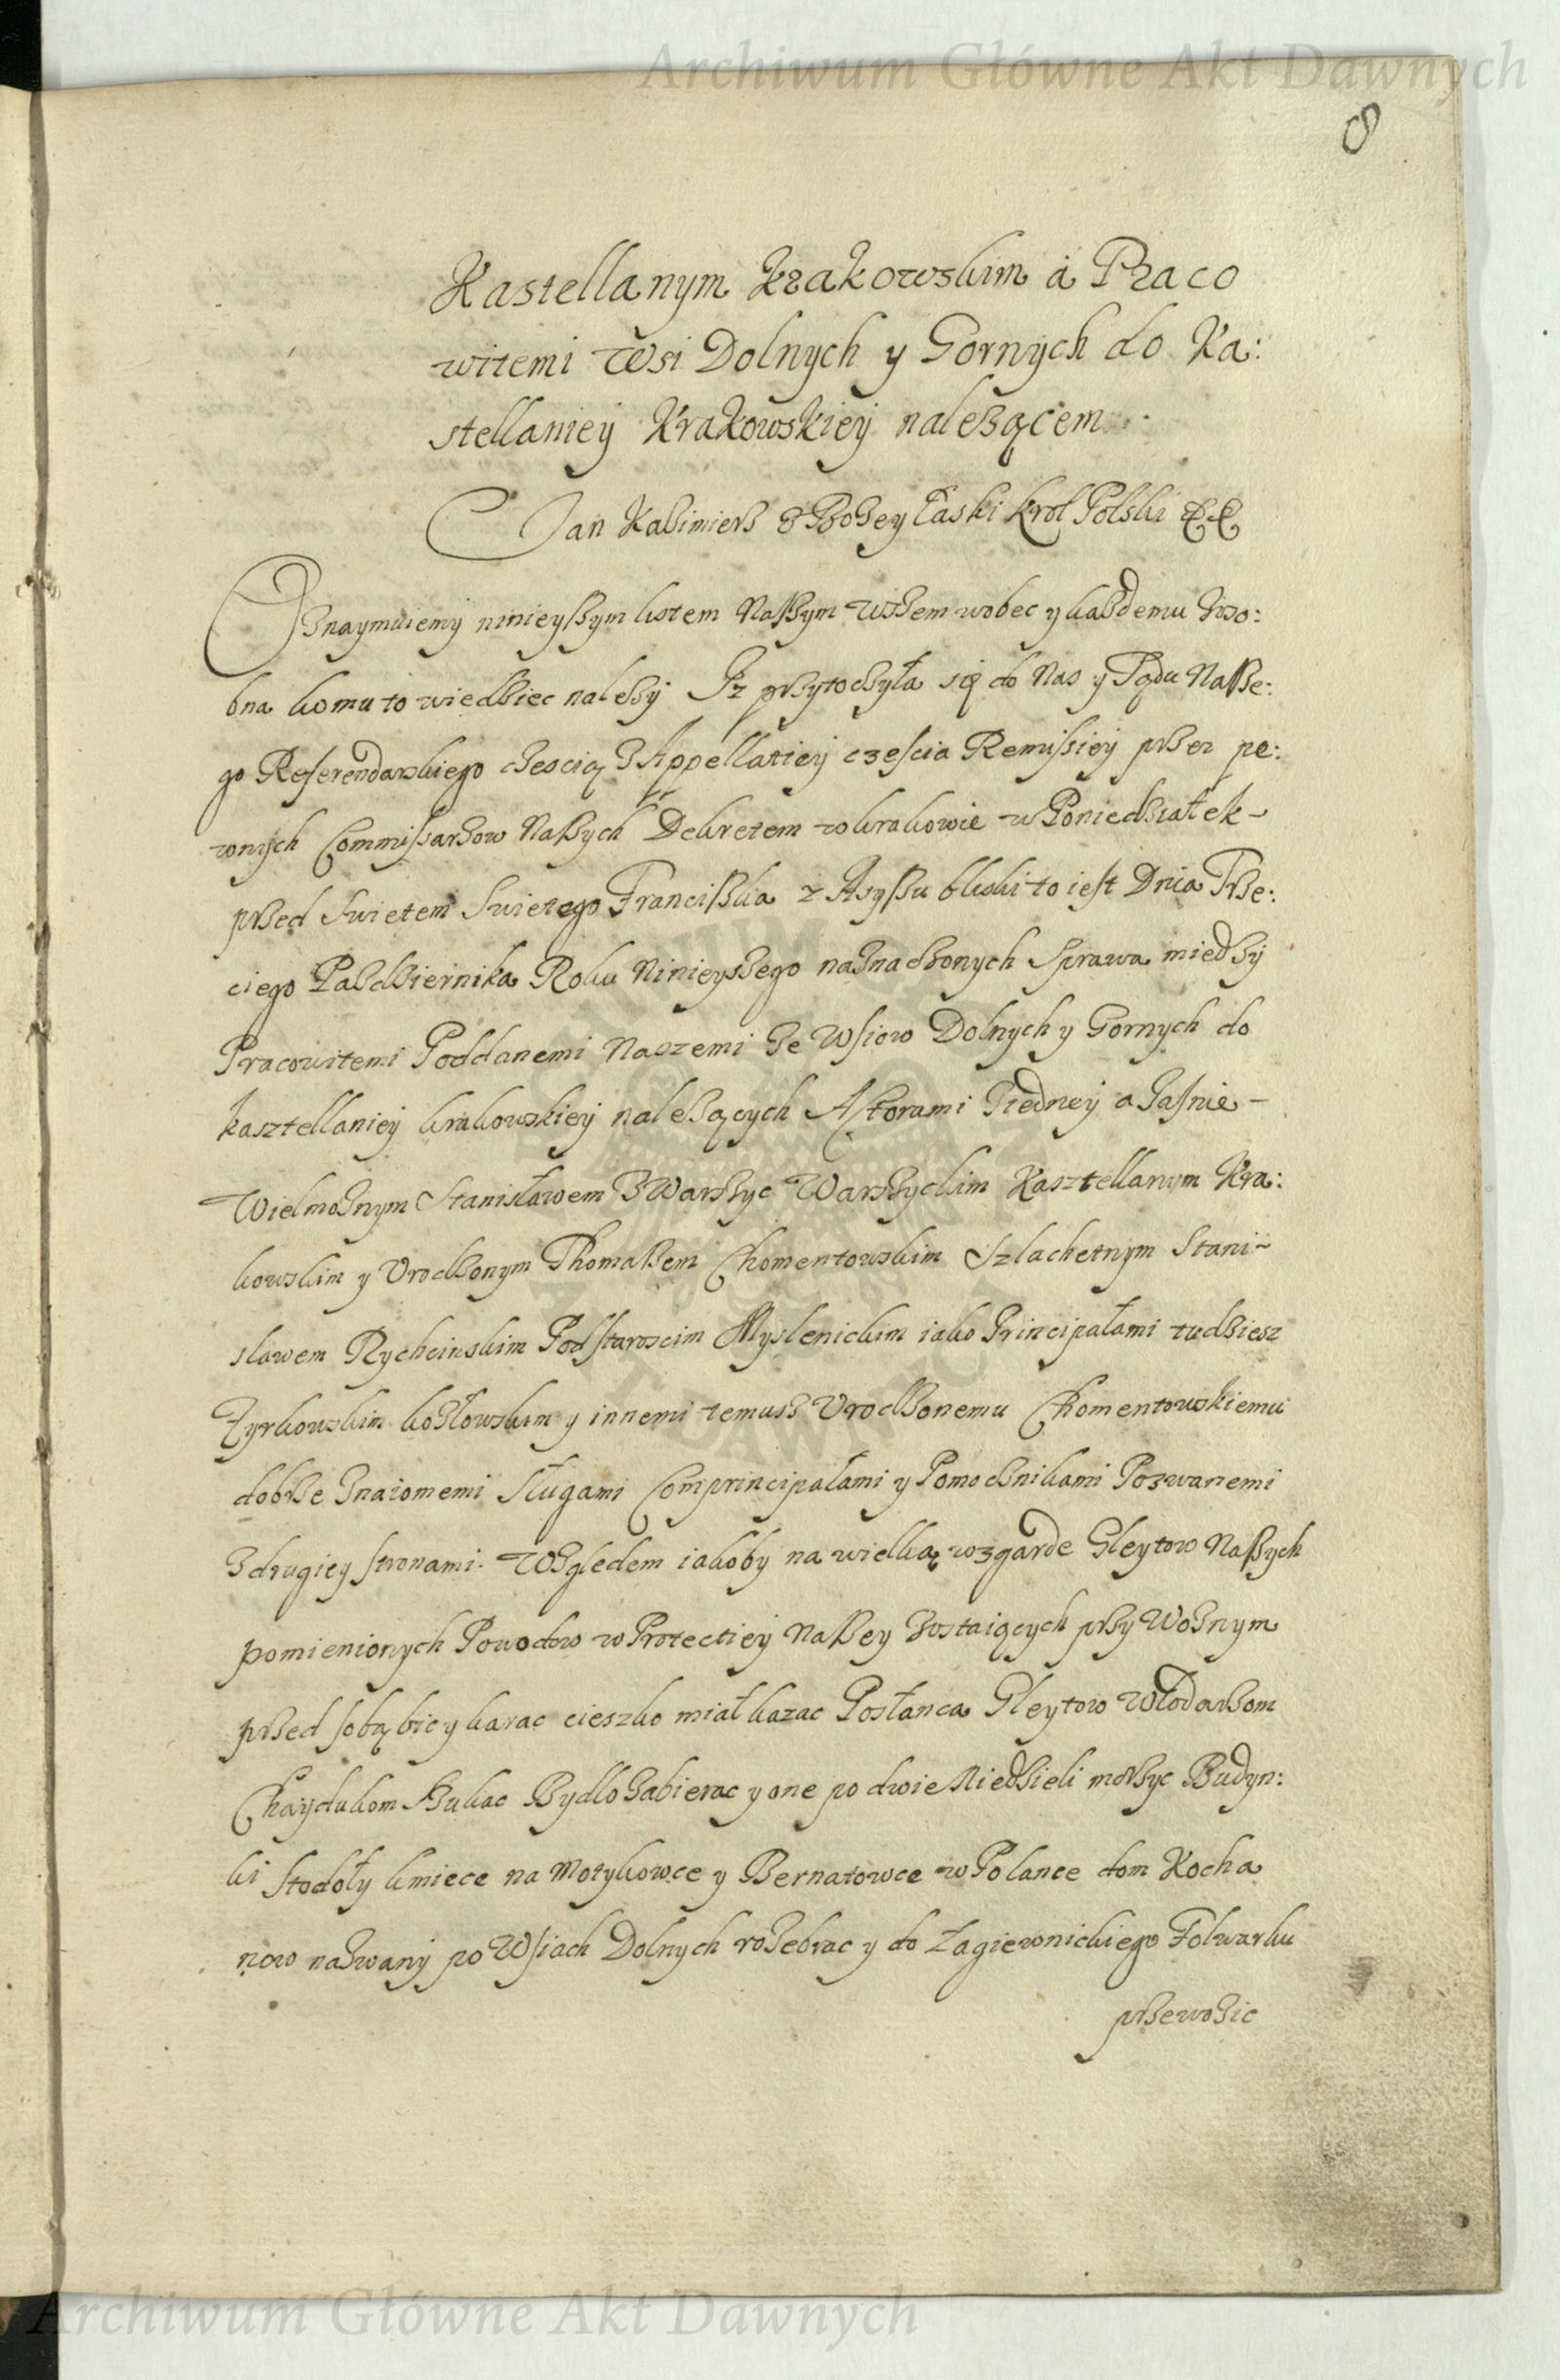 Archiwum Główne Akt Dawnych
8
Kastellanym Krakowskim á Praco
witemi Wsi Dolnych y Gornych do Ka:
stellaniey Krakowskiey należącem
Jan Kazimierz z Bozey Łaski Krol Polski &&
Oznaymuiemy ninieyszym listem Naszym wszem wobec y kazdemu zoso:
bna komu to wiedziec nalezy Iz przytoczyła się do Nas y Sądu Nasze:
go Referendarskiego czescią z Appellatiey czescia Remissiey przez pe:
wnych Commissarzow Naszych Dekretem w Krakowie w Poniedziałek
przed Swietem Swietego Franciszka z Asyszu bliski to iest Dnia Trze:
ciego Pazdziernika Roku Ninieyszego naznaczonych Sprawa miedzy
Pracowitemi Poddanemi Naszemi ze Wsiow Dolnych y Gornych do
kasztellaniey krakowskiey nalezących Actorami z iedney a Jasnie
Wielmoznym Stanisławem z Warszyc Warszyckim Kasztellanym Kra:
kowskim y Urodzonym Thomaszem Chomentowskim Szlachetnym Stani-
slawem Rychcinskim Podstaroscim Myslenickim iako Principałami tudziesz
Zyrkowskim kozłowskim y innemi temusz Urodzonemu Chomentowskiemu
dobrze znaiomemi Sługami Comprincipałami y Pomocznikami Pozwanemi
z drugiey stronami. Względem iakoby na wielką wzgarde Gleytow Naszych
pomienionych Powodow w Protectiey Naszey zostaiących przy Woznym
przed sobą bic y karac cieszko miał kazac Posłanca Gleytow Włodarzom
Chaydukom szukac Bydlo zabierac y one po dwie Niedzieli morzyc Budyn:
ki Stodoły kmiece na Motykowce y Bernatowce w Polance dom Kocha
now nazwany po Wsiach Dolnych rozebrac y do Łagiewnickiego Folwarku
przewozic
Archiwum Główne Akt Dawnych